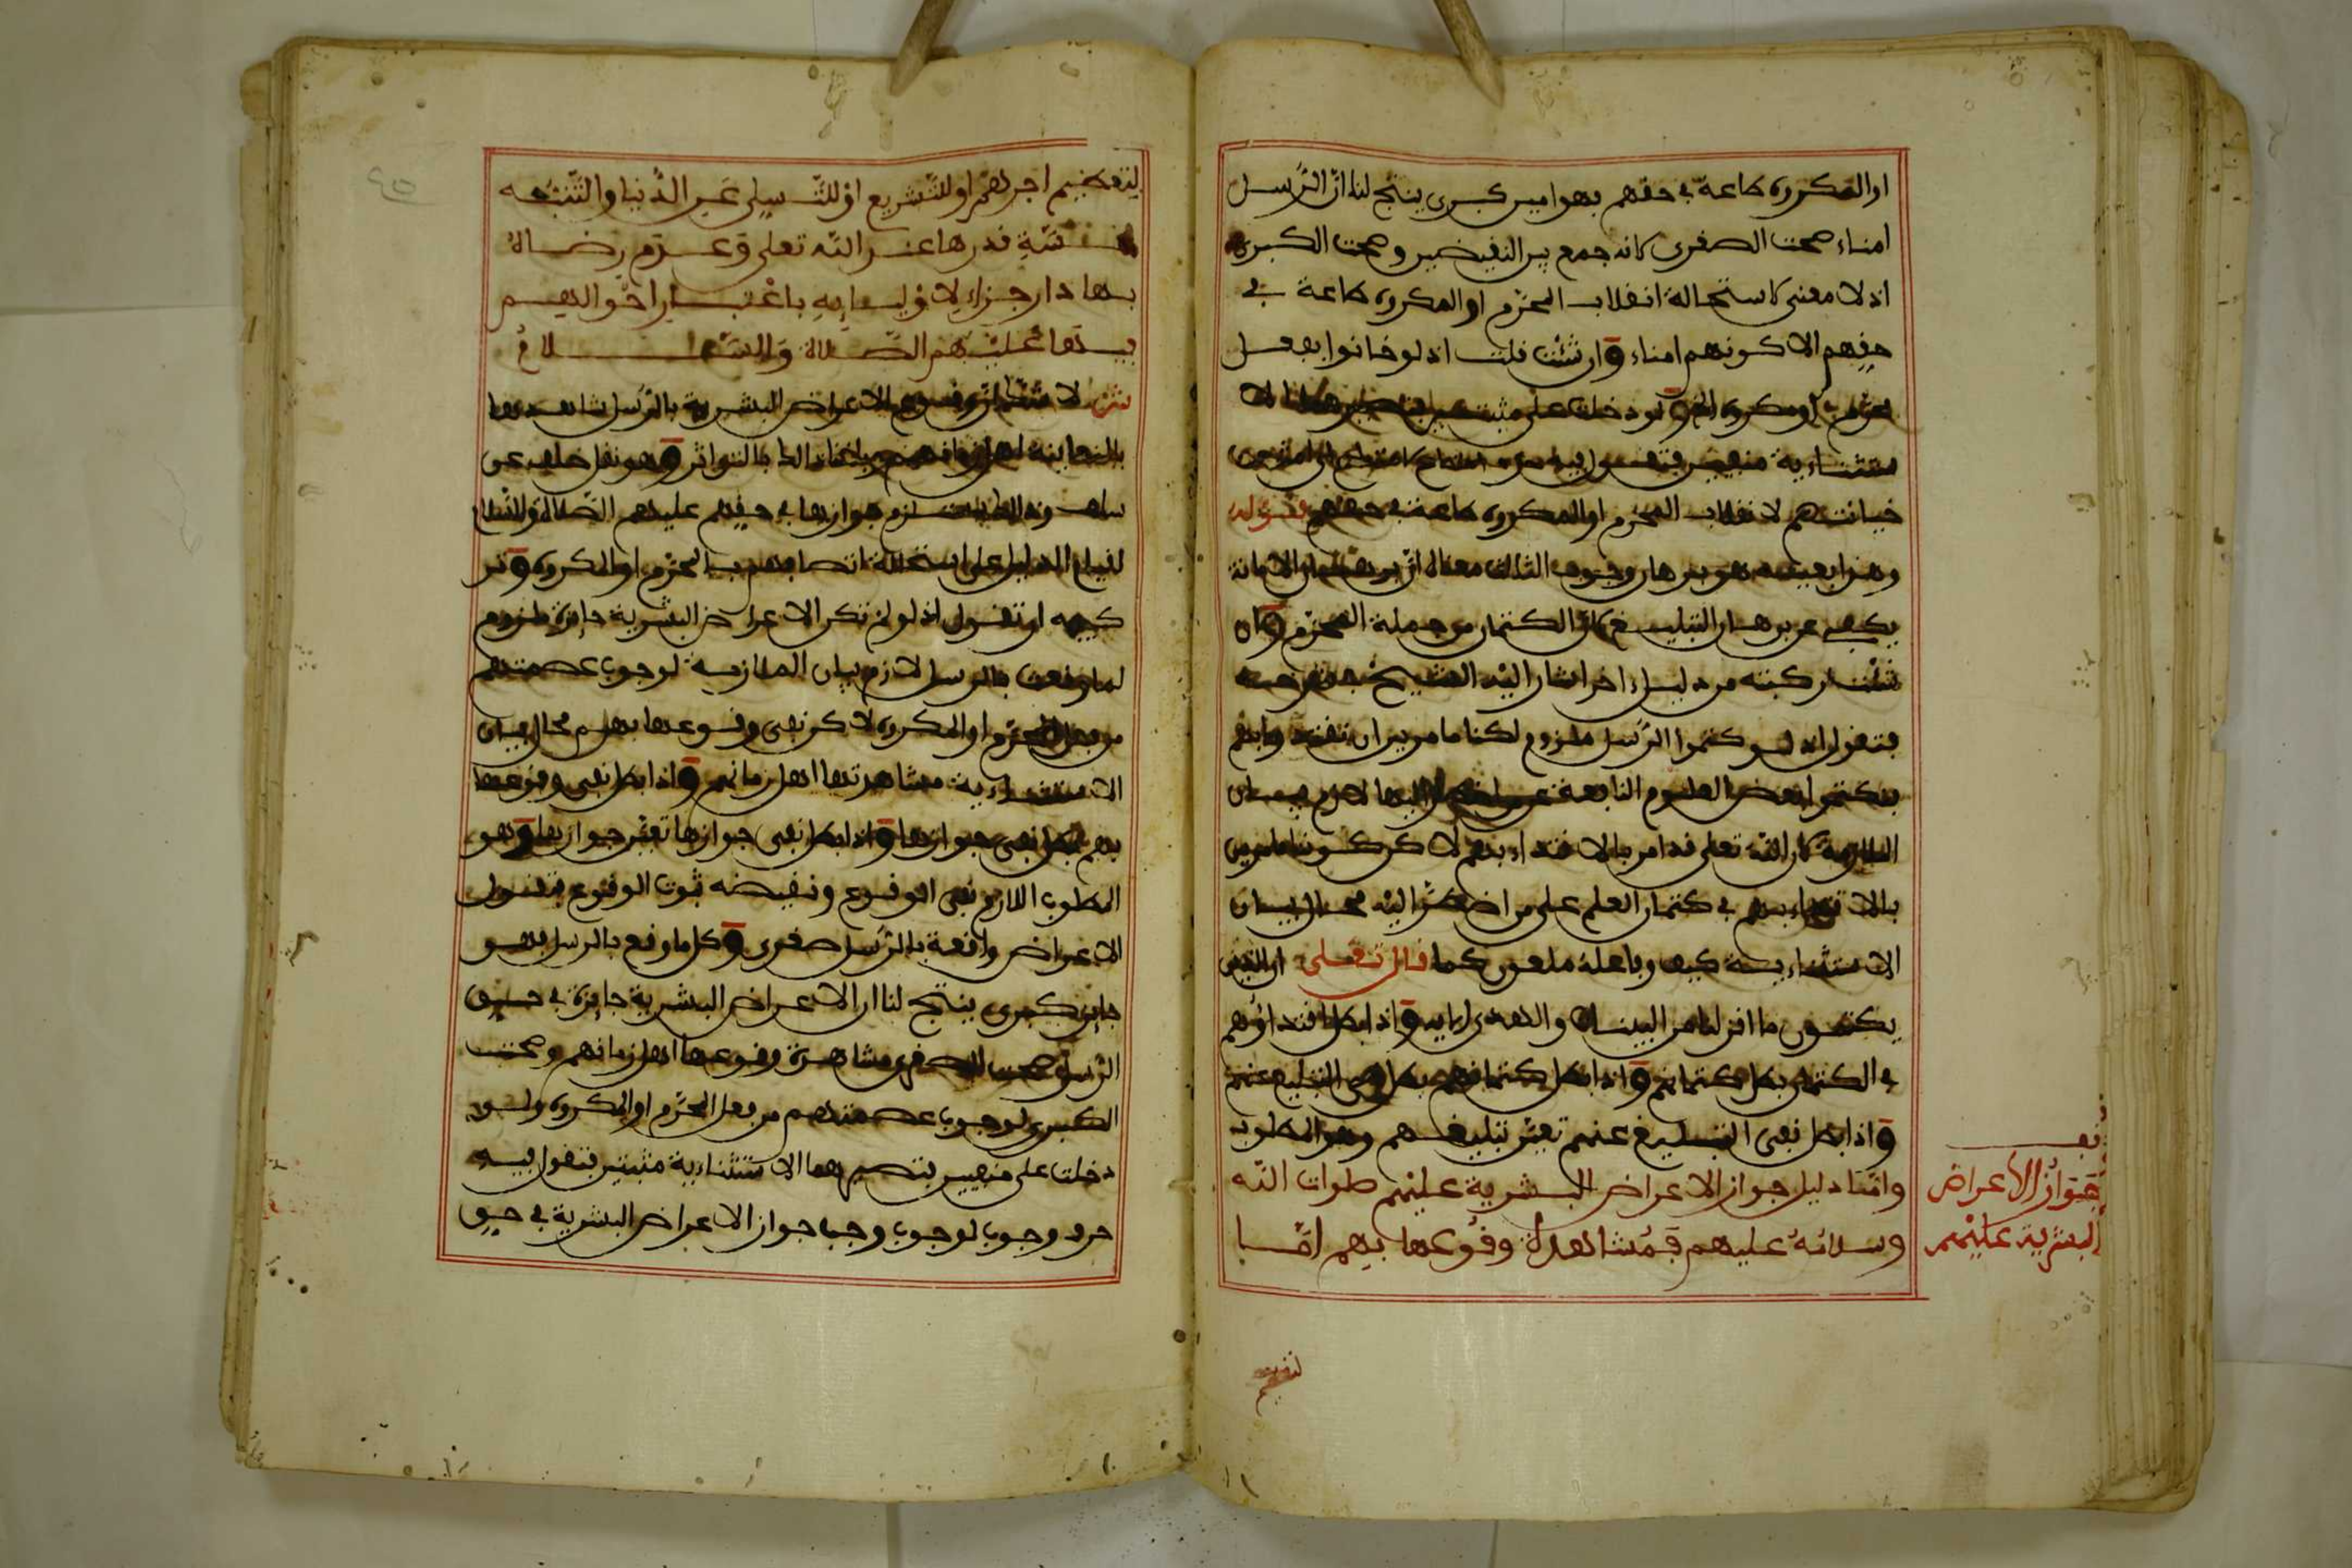 او المكروه طاعة في حقهم فهو امين كبرى ينتج لنا ان الرسل
امناء صحت الصغرى لانه جمع بين النقيضين وصحت الكبرى
اذ لا معنى لاستحالة انقلاب المحرم او المكروه طاعة في
حقهم الا كونهم امناء وان شئت قلت اذ لو خانوا بفعل
محرم او مكروه الخ لو دخلت على مثبتين
ستثناءية منفيين فتقول فيه حرف امتناع لامتناع امتنعت
خيانتهم لانقلاب المحرم او المكروه طاعة في حقهم قوله
وهذا بعينه هو برهان وجوب الثالث معناه ان برهان الامانة
يكفي عن برهان التبليغ لان الكتمان من جملة المحرم وان
شئت ركبته من دليل اخر اشار اليه الشيخ
فتقول اذ لو كتموا الرسل ملزوم لكنا مامورين ان نقتدي بهم
بكتم بعض العلوم النافعة عن من اضطر اليها لازم بيان
الملازمة لان الله تعلى قد امر بالاقتداء بهم لاكن كوننا مامورين
بالاقتداء بهم في كتمان العلم على من اضطر اليه محال بيان
الاستثناءية كيف وفاعله ملعون كما قال تعلى ان الذين
يكتمون ما انزلنا من البينات والهدى الاية واذا بطل اقتداؤهم
في الكتمان بطل كتمانهم واذا بطل كتمانهم بطل نفي التبليغ عنهم
واذا بطل نفي التبليغ عنهم تعين تبليغهم وهو المطلوب
واما دليل جواز الاعراض البشرية عليهم صلوات الله
وسلامه عليهم فمشاهدة وقوعها بهم اما
جواز الاعراض
البشرية عليهم
لتعظيم
لتعظيم اجرهم او للتشريع او للتسلي عن الدنيا والتنبيه
لخسة قدرها عند الله تعلى وعدم رضاه
بها دار جزاء لاوليايه باعتبار احوالهم
فيها عليهم الصلاة والسلام
ش لا شك ان وقوع الاعراض البشرية بالرسل شاهدها
بالمعاينة اهل زمانهم وبلغنا ذالك بالتواتر وهو نقل خلف عن
سلف وذالك يستلزم جوازها في حقهم عليهم الصلاة والسلام
لقيام الدليل على استحالة اتصافهم بالمحرم او المكروه وتر
كيبه ان تقول اذ لو لم تكن الاعراض البشرية جايزة ملزوم
لما وقعت بالرسل لازم بيان الملازمة لوجوب عصمتهم
من فعل المحرم او المكروه لاكن نفي وقوعها بهم محال بيان
الاستثناءية مشاهدتها اهل زمانهم واذا بطل نفي وقوعها
بهم بطل نفي جوازها واذا بطل نفي جوازها تعين جوازها وهو
المطلوب اللازم نفي الوقوع ونقيضه ثبوت الوقوع فتقول
الاعراض واقعة بالرسل صغرى وكل ما وقع بالرسل فهو
جايز كبرى ينتج لنا ان الاعراض البشرية جايزة في حق
الرسل صحت الصغرى مشاهدة وقوعها اهل زمانهم وصحت
الكبرى لوجوب عصمتهم من فعل المحرم او المكروه ولو
دخلت على منفيين فتصيرهما الاستثناءية مثبتين فتقول فيه
حرف وجوب لوجوب وجب جواز الاعراض البشرية في حق